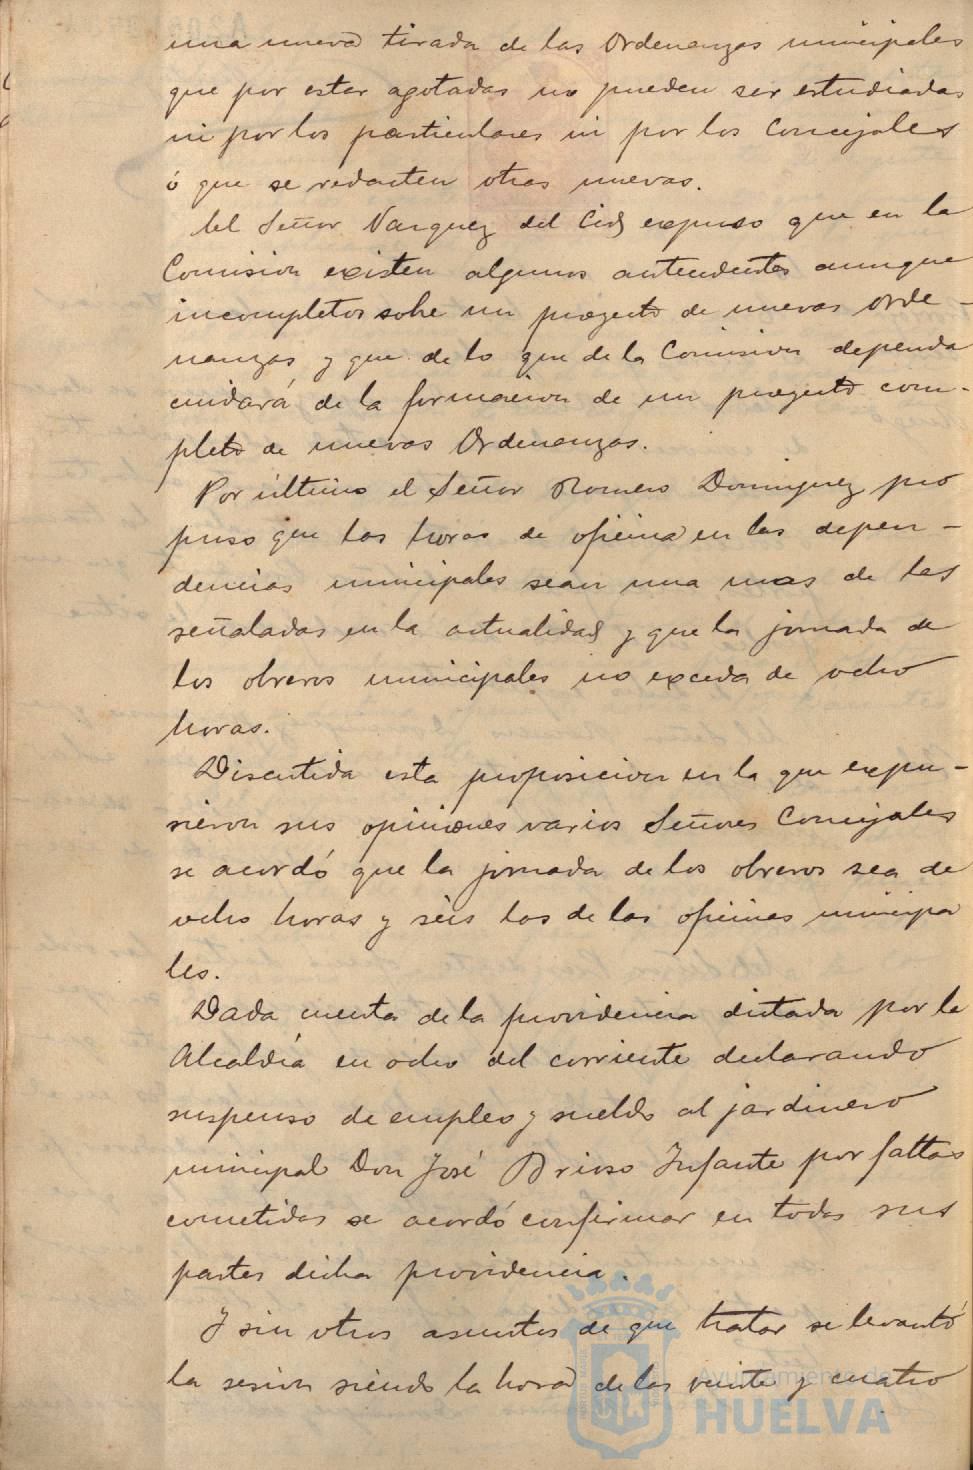 una nueva tirada de las Ordenanzas municipales
que por estar agotadas no pueden ser estudiadas
ni por los particulares ni por los Concejales
ó que se redacten otras nuevas.
El Señor Vazquez del Cid expuso que en la
Comision existen algunos antecedentes aunque
incompletos sobre un proyecto de nuevas orde-
nanzas y que de lo que de la Comision dependa
cuidará de la formacion de un proyecto com-
pleto de nuevas Ordenanzas.
Por último el Señor Romero Dominguez pro
puso que las horas de oficina en las depen-
dencias municipales sean una mas de las
señaladas en la actualidad y que la jornada de
los obreros municipales no exceda de ocho
horas.
Discutida esta proposicion en la que expu-
sieron sus opiniones varios Señores Concejales
se acordó que la jornada de los obreros sea de
ocho horas y seis las de las oficinas municipa
les.
Dada cuenta de la providencia dictada por la
Alcaldía en ocho del corriente declarando
suspenso de empleo y sueldo al jardinero
municipal Don José Brioso Infante por faltas
cometidas se acordó confirmar en todas sus
partes dicha providencia.
Y sin otros asuntos de que tratar se levantó
la sesion siendo la hora de las veinte y cuatro
Ayuntamiento de
HUELVA